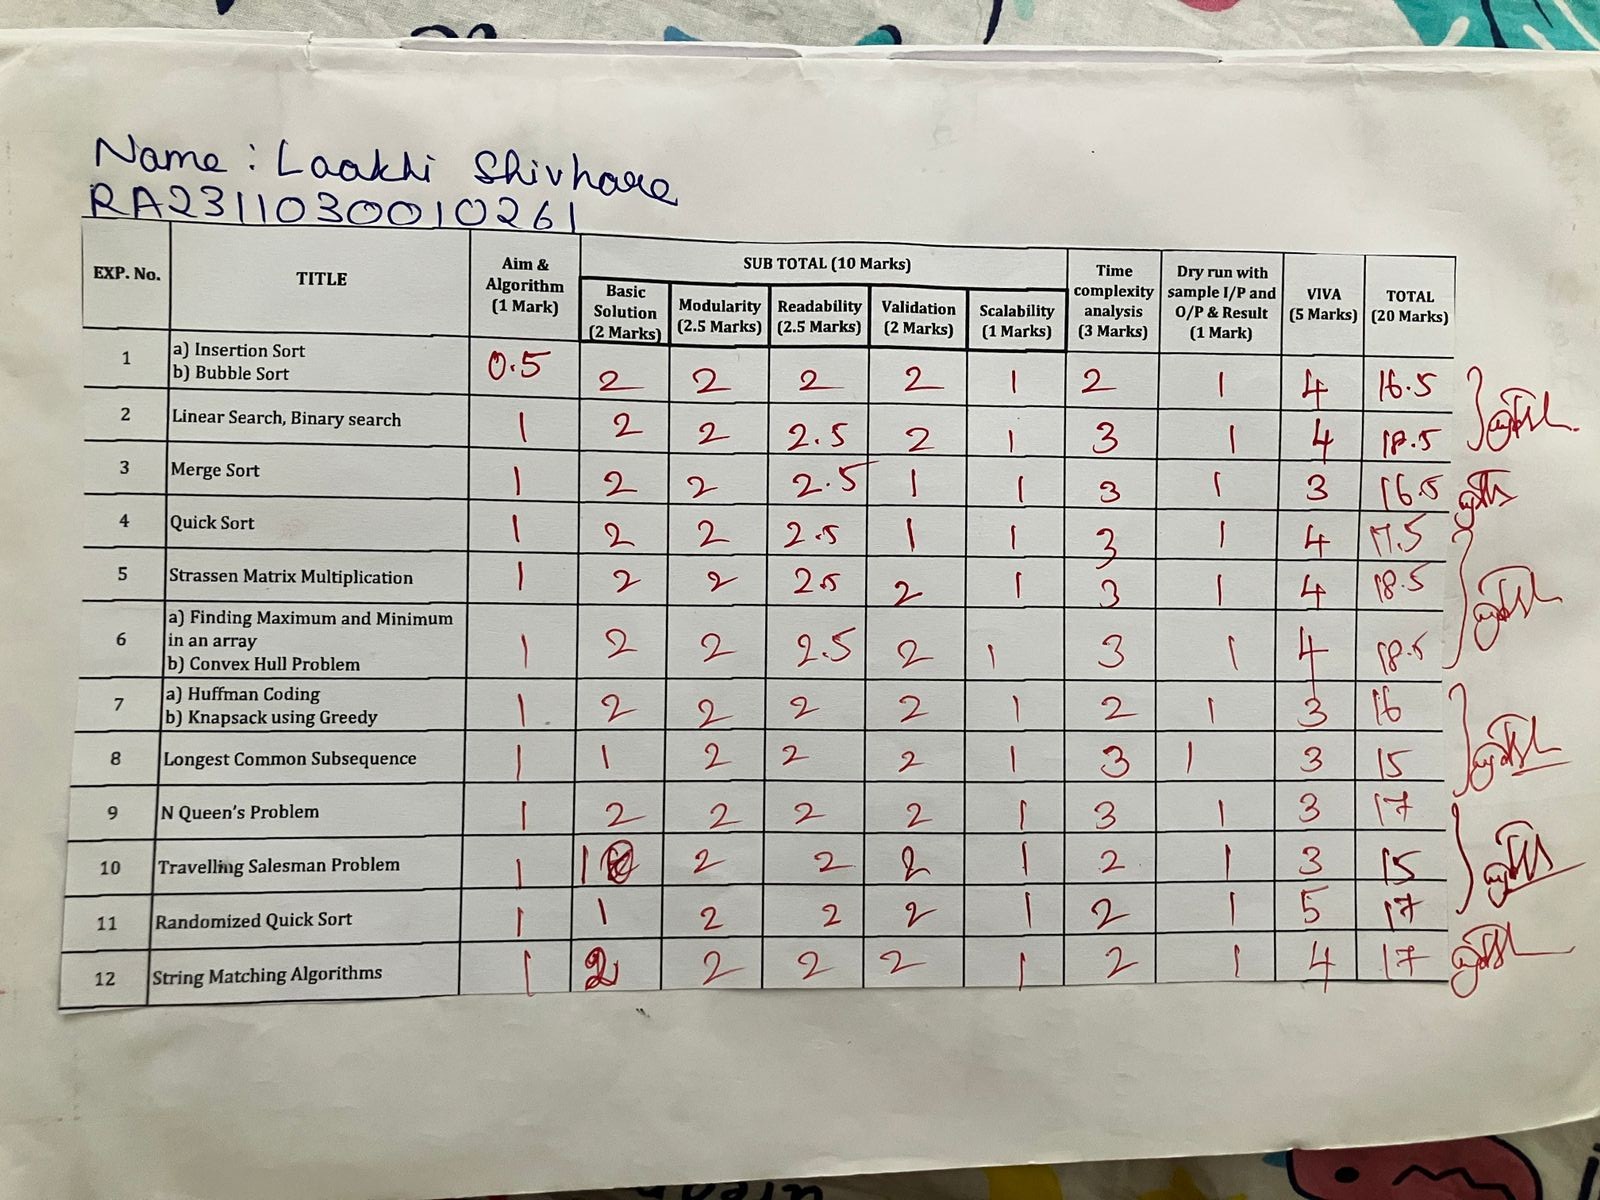 Name : Laakhi Shivhare
RA2311030010261
EXP. No. TITLE Aim & Algorithm (1 Mark) SUB TOTAL (10 Marks) Time complexity analysis (3 Marks) Dry run with sample I/P and O/P & Result (1 Mark) VIVA (5 Marks) TOTAL (20 Marks)
Basic Solution (2 Marks) Modularity (2.5 Marks) Readability (2.5 Marks) Validation (2 Marks) Scalability (1 Marks)
1 a) Insertion Sort b) Bubble Sort 0.5 2 2 2 2 1 2 1 4 16.5
2 Linear Search, Binary search 1 2 2 2.5 2 1 3 1 4 18.5
3 Merge Sort 1 2 2 2.5 1 1 3 1 3 16.5
4 Quick Sort 1 2 2 2.5 1 1 3 1 4 17.5
5 Strassen Matrix Multiplication 1 2 2 2.5 2 1 3 1 4 18.5
6 a) Finding Maximum and Minimum in an array b) Convex Hull Problem 1 2 2 2.5 2 1 3 1 4 18.5
7 a) Huffman Coding b) Knapsack using Greedy 1 2 2 2 2 1 2 1 3 16
8 Longest Common Subsequence 1 1 2 2 2 1 3 1 3 15
9 N Queen's Problem 1 2 2 2 2 1 3 1 3 17
10 Travelling Salesman Problem 1 1 2 2 2 1 2 1 3 15
11 Randomized Quick Sort 1 1 2 2 2 1 2 1 5 17
12 String Matching Algorithms 1 2 2 2 2 1 2 1 4 17